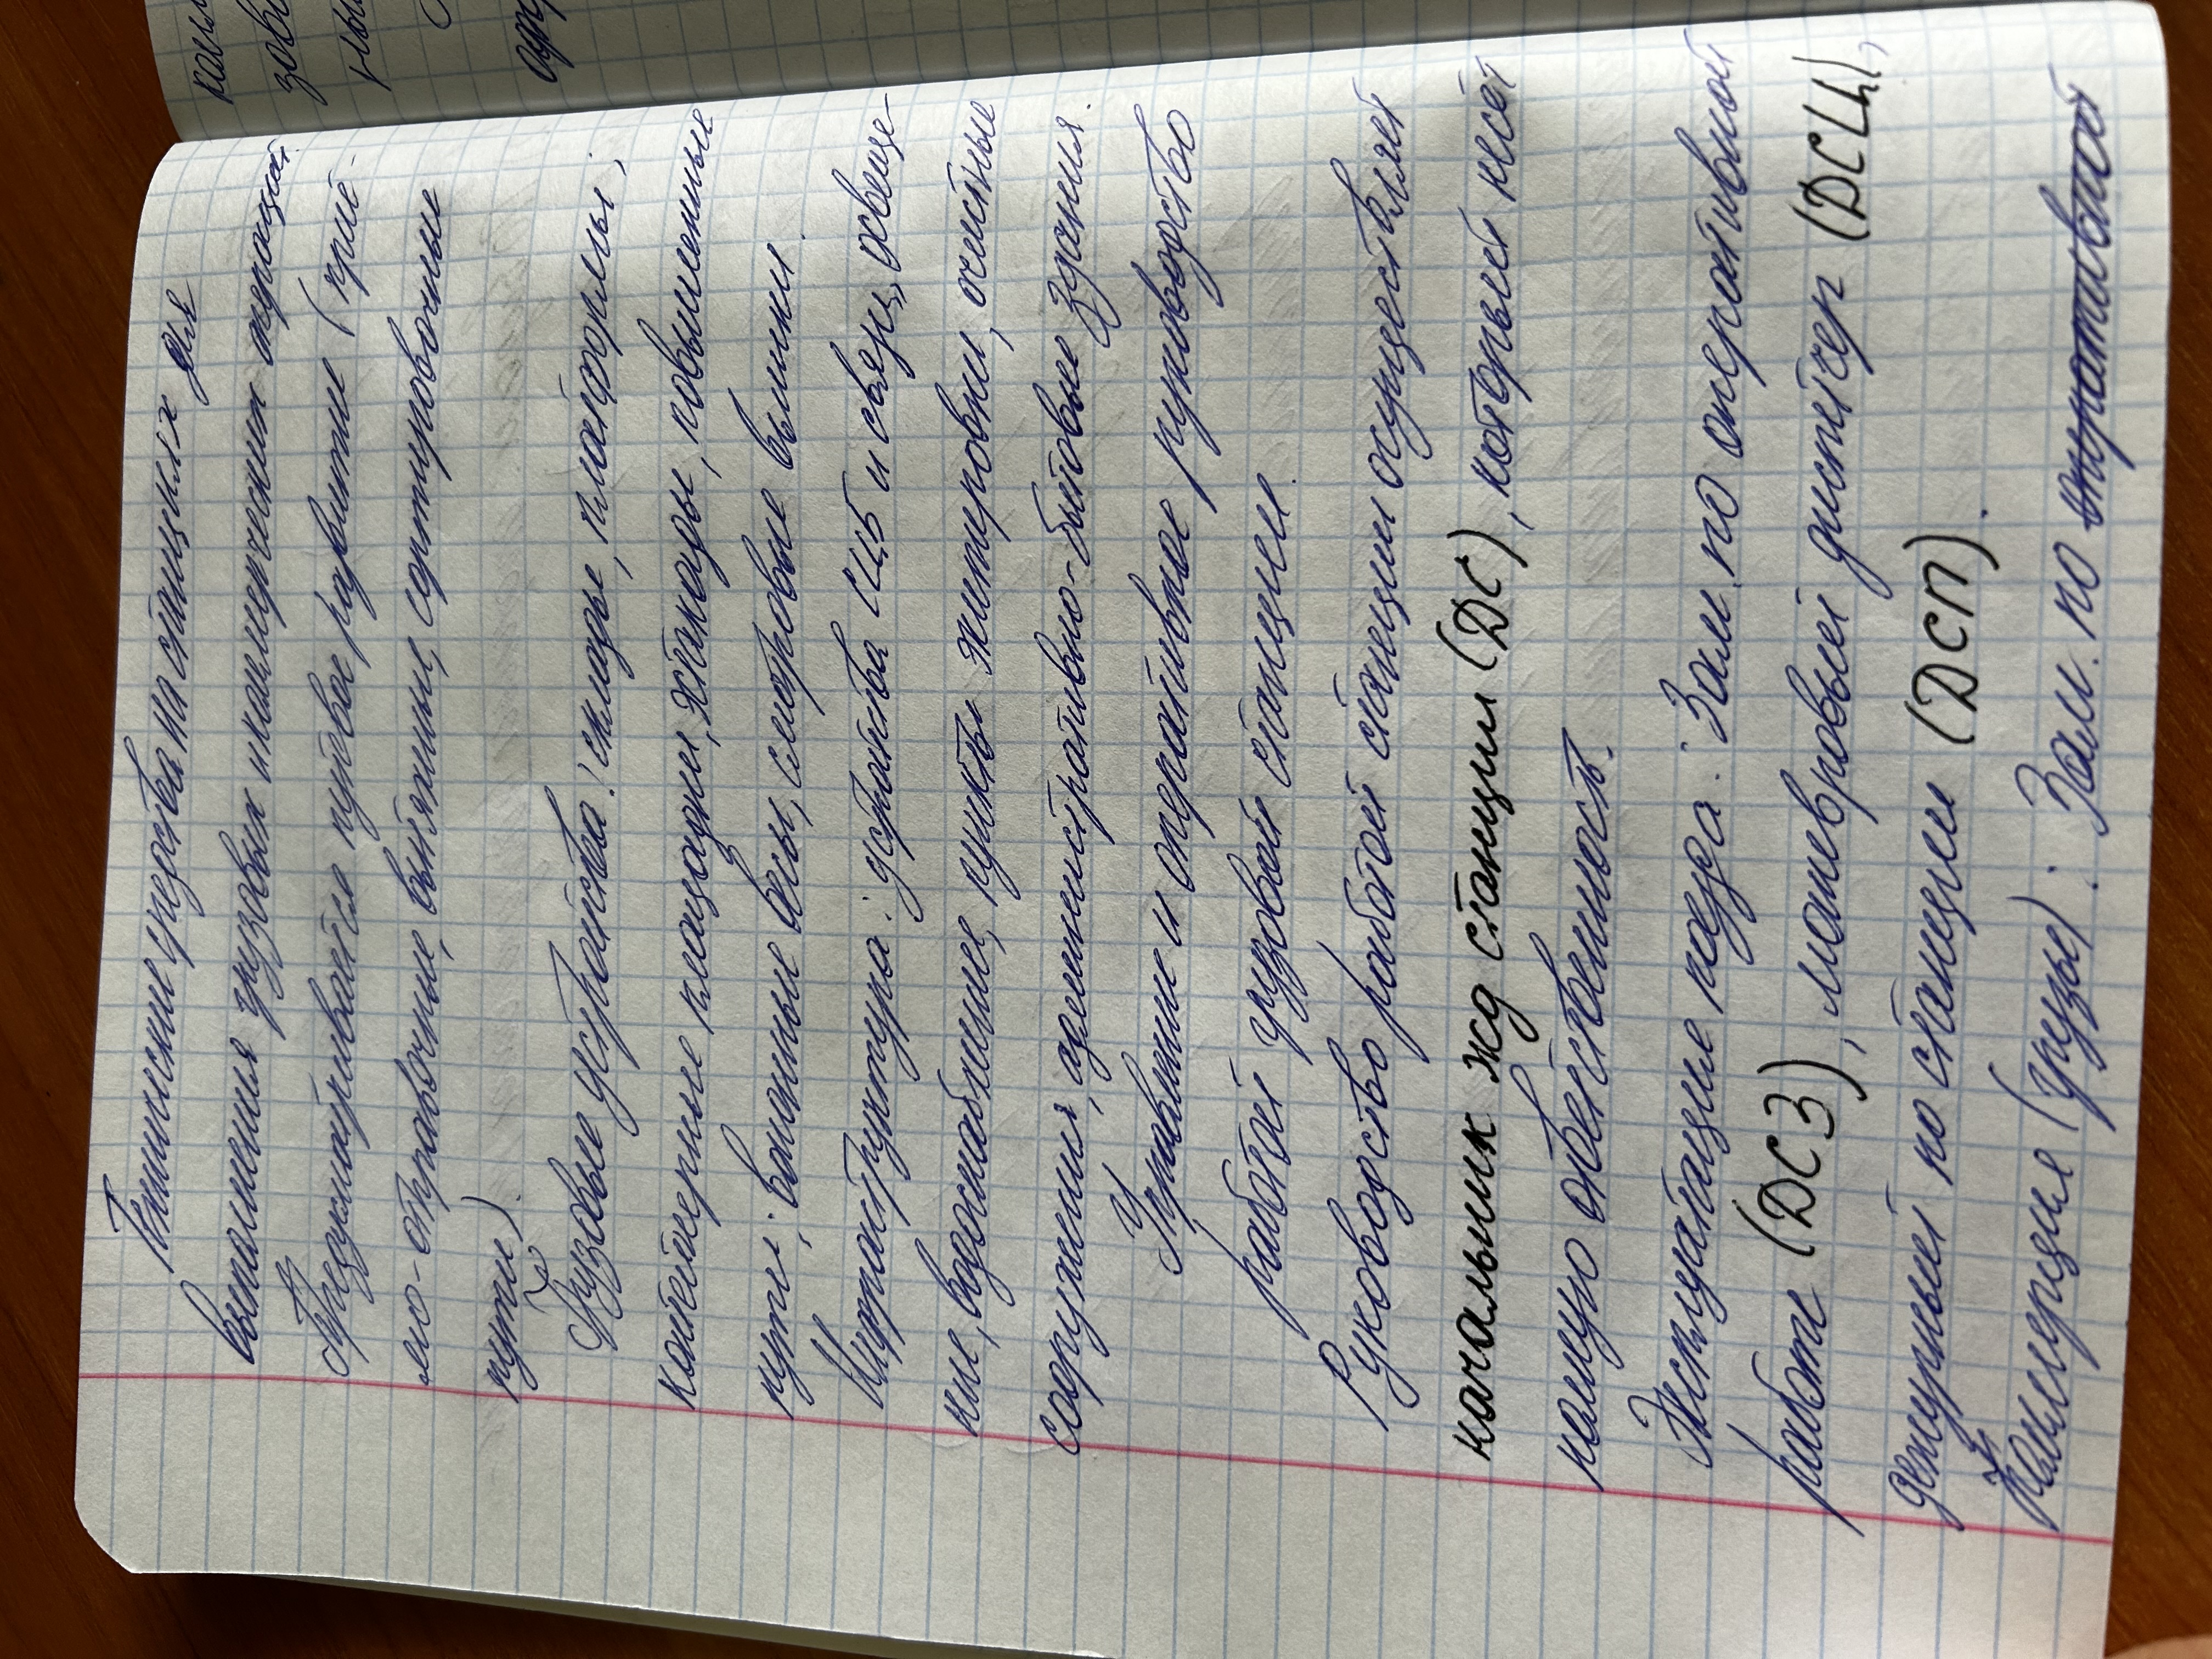 Технические средства на станциях для
выполнения грузовых и коммерческих операций
Предусматривается путевое развитие (приё-
мо-отправочные, вытяжные, сортировочные
пути).
Грузовые устройства: склады, платформы,
контейнерные площадки, эстакады, повышенные
пути; вагонные весы, смотровые вышки.
Инфраструктура: устройства СЦБ и связи, освеще-
ние, водоснабжение, пункты экипировки, очистные
сооружения, административно-бытовые здания.
Управление и оперативное руководство
работой грузовой станции.
Руководство работой станции осуществляет
начальник жд станции (ДС), который несёт
полную ответственность.
Эксплуатация похода: Зам. по оперативной
работе (ДСЗ), маневровый диспетчер (ДСЦ),
дежурный по станции (ДСП).
Коммерция (грузы): Зам. по оперативной
кош
зави
ным